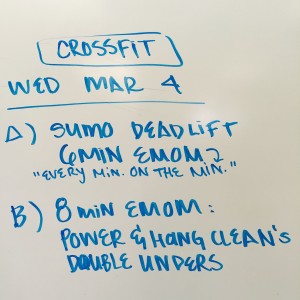 CROSSFIT
WED MAR 4
A) SUMO DEADLIFT
6MIN EMOM
"EVERY MIN. ON THE MIN."
B) 8 MIN EMOM:
POWER & HANG CLEAN'S
DOUBLE UNDERS